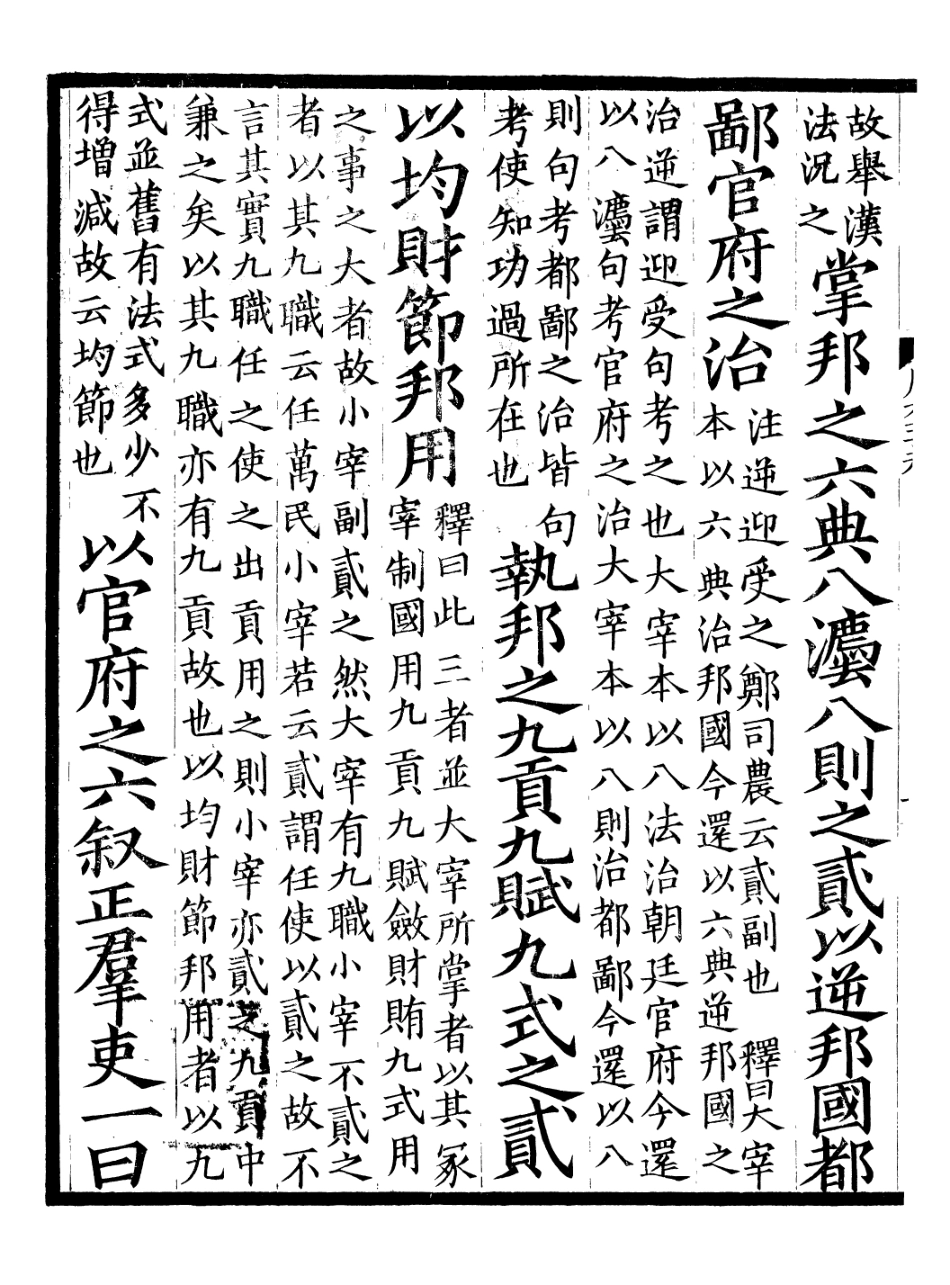 故舉漢
法況之
掌邦之六典八灋八則之貳以逆邦國都
鄙官府之治
注逆迎受之鄭司農云貳副也　釋曰大宰
本以六典治邦國今還以六典逆邦國之
治逆謂迎受句考之也大宰本以八法治朝廷官府今還
以八灋句考官府之治大宰本以八則治都鄙今還以八
則句考都鄙之治皆句
考使知功過所在也
執邦之九貢九賦九式之貳
以均財節邦用
釋曰此三者並大宰所掌者以其冢
宰制國用九貢九賦斂財賄九式用
之事之大者故小宰副貳之然大宰有九職小宰不貳之
者以其九職云任萬民小宰若云貳謂任使以貳之故不
言其實九職任之使之出貢用之則小宰亦貳之九貢中
兼之矣以其九職亦有九貢故也以均財節邦用者以九
式並舊有法式多少不
得增減故云均節也
以官府之六叙正羣吏一曰